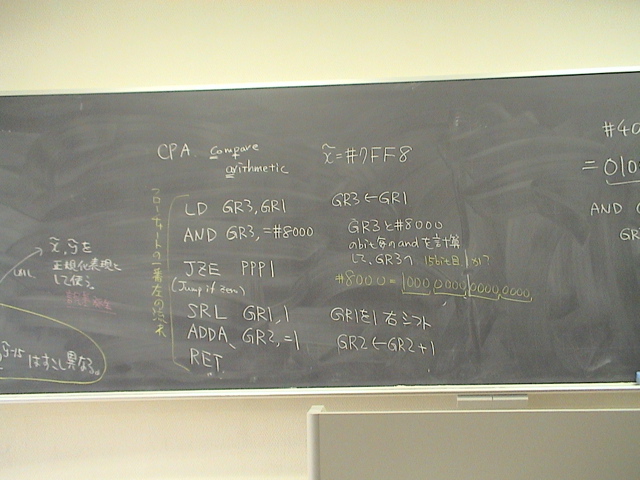 CPA. compare
arithmetic
x̃=#7FF8
フローチャートの一番左の流れ
LD GR3, GR1
GR3←GR1
AND GR3,=#8000
GR3と#8000
のbit毎のandを計算
して、GR3へ 15bit目
JZE PPP1
(Jump if zero)
#8000=1000,0000,0000,0000,
SRL GR1,1
GR1を1右シフト
ADDA GR2,=1
GR2←GR2+1
RET
x̃,ỹを
正規化表現と
して使う。
はすこし異なる。
#40
=010
AND G
GR